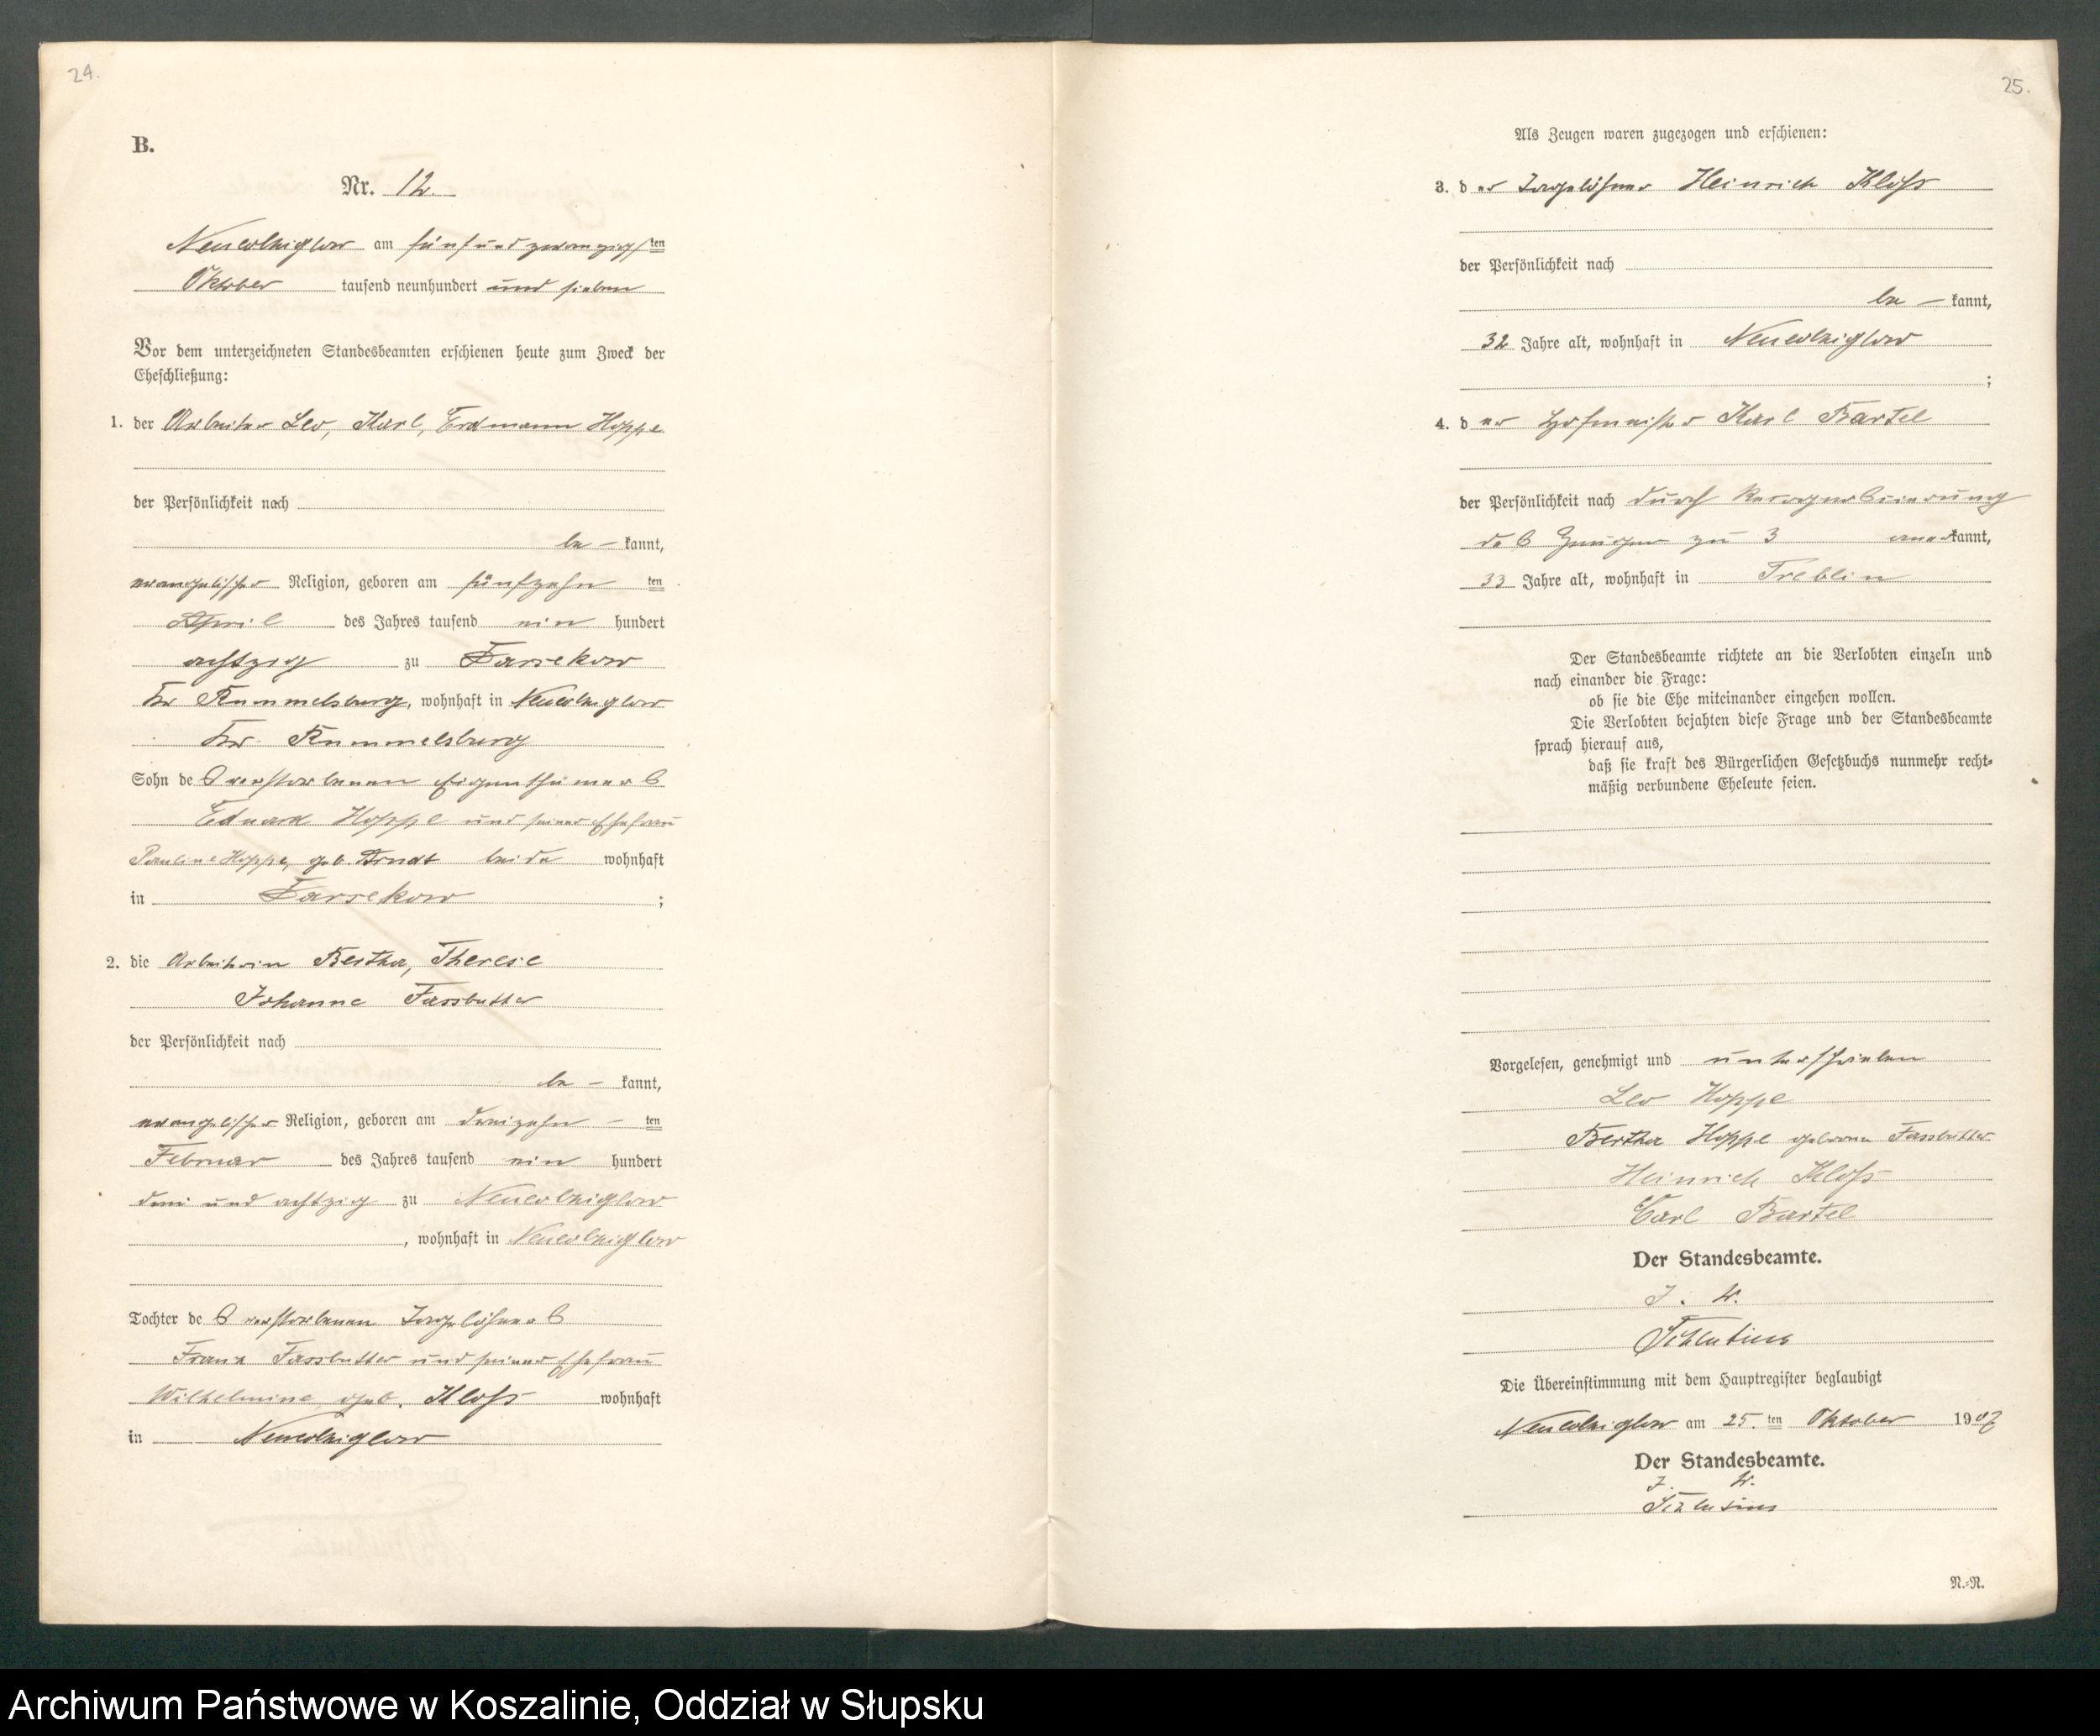 24.
B.
Nr. 12.
Neukolziglow am fünfundzwanzigsten
Oktober tausend neunhundert und sieben
Vor dem unterzeichneten Standesbeamten erschienen heute zum Zweck der
Eheschließung:
1. der Arbeiter Leo, Karl, Erdmann Hoppe
der Persönlichkeit nach
be – kannt,
evangelischer Religion, geboren am fünfzehn ten
April des Jahres tausend ein hundert
achtzig zu Barnekow
Kr Rummelsburg, wohnhaft in Neukolziglow
Kr. Rummelsburg
Sohn des verstorbenen Eigenthümers
Eduard Hoppe und seiner Ehefrau
Pauline Hoppe, geb. Arndt beide wohnhaft
in ;
2. die Arbeiterin Bertha, Therese
Johanne Fassbutter
der Persönlichkeit nach
be – kannt,
evangelischer Religion, geboren am dreizehn – ten
Februar des Jahres tausend ein hundert
drei und achtzig zu Neukolziglow
, wohnhaft in Neukolziglow
Tochter des verstorbenen Tagelöhners
Franz Fassbutter und seiner Ehefrau
Wilhelmine geb. Kloß wohnhaft
in Neukolziglow
25.
Als Zeugen waren zugezogen und erschienen:
3. der Tagelöhner Heinrich Kloß
der Persönlichkeit nach
be – kannt,
32 Jahre alt, wohnhaft in Neukolziglow
;
4. der Hofmeister Karl Bartel
der Persönlichkeit nach durch Recognoscierung
des Zeugen zu 3 anerkannt,
33 Jahre alt, wohnhaft in Treblin
Der Standesbeamte richtete an die Verlobten einzeln und
nach einander die Frage:
ob sie die Ehe miteinander eingehen wollen.
Die Verlobten bejahten diese Frage und der Standesbeamte
sprach hierauf aus,
daß sie kraft des Bürgerlichen Gesetzbuchs nunmehr recht-
mäßig verbundene Eheleute seien.
Vorgelesen, genehmigt und unterschrieben
Leo Hoppe
Bertha Hoppe geborene Fassbutter
Heinrich Kloß
Carl Bartel
Der Standesbeamte.
J. V.
Die Übereinstimmung mit dem Hauptregister beglaubigt
Neukolziglow am 25. ten Oktober 1907
Der Standesbeamte.
J. V.
N.-R.
Archiwum Państwowe w Koszalinie, Oddział w Słupsku